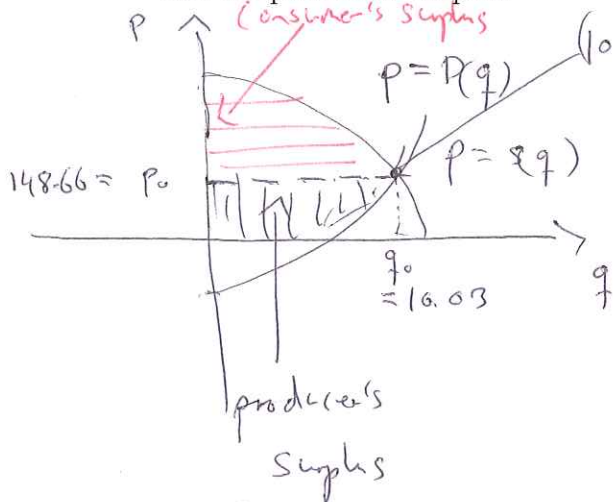 P
Consumer's surplus
(10
p = D(q)
p = s(q)
148.66 = p₀
q₀
= 10.03
q
producer's
surplus